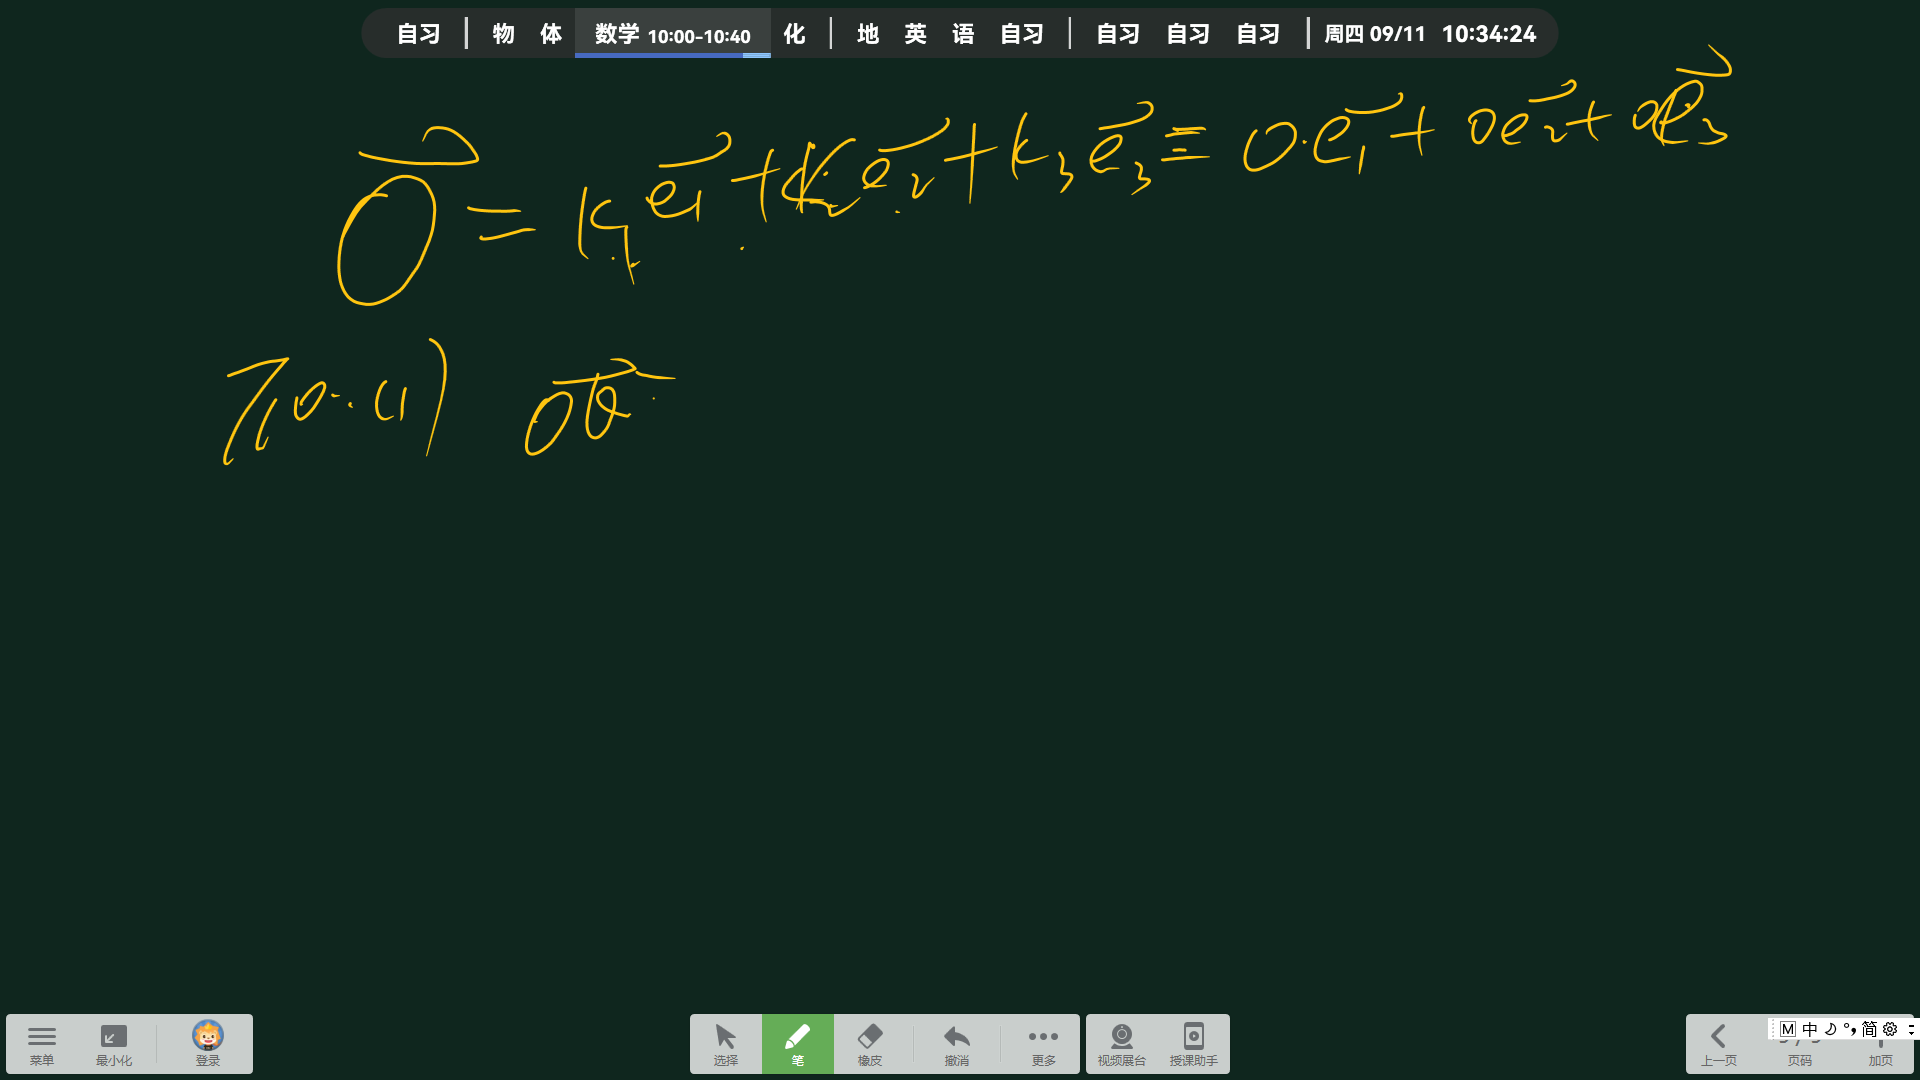 自习 | 物 体 数学 10:00-10:40 化 | 地 英 语 自习 | 自习 自习 自习 | 周四 09/11 10:34:24
0⃗ = k₁e₁⃗ + k₂e₂⃗ + k₃e₃⃗ = 0·e₁⃗ + 0e₂⃗ + 0e₃⃗
菜单 最小化 登录 选择 笔 橡皮 撤消 更多 视频展台 授课助手 上一页 页码 加页
M 中 简